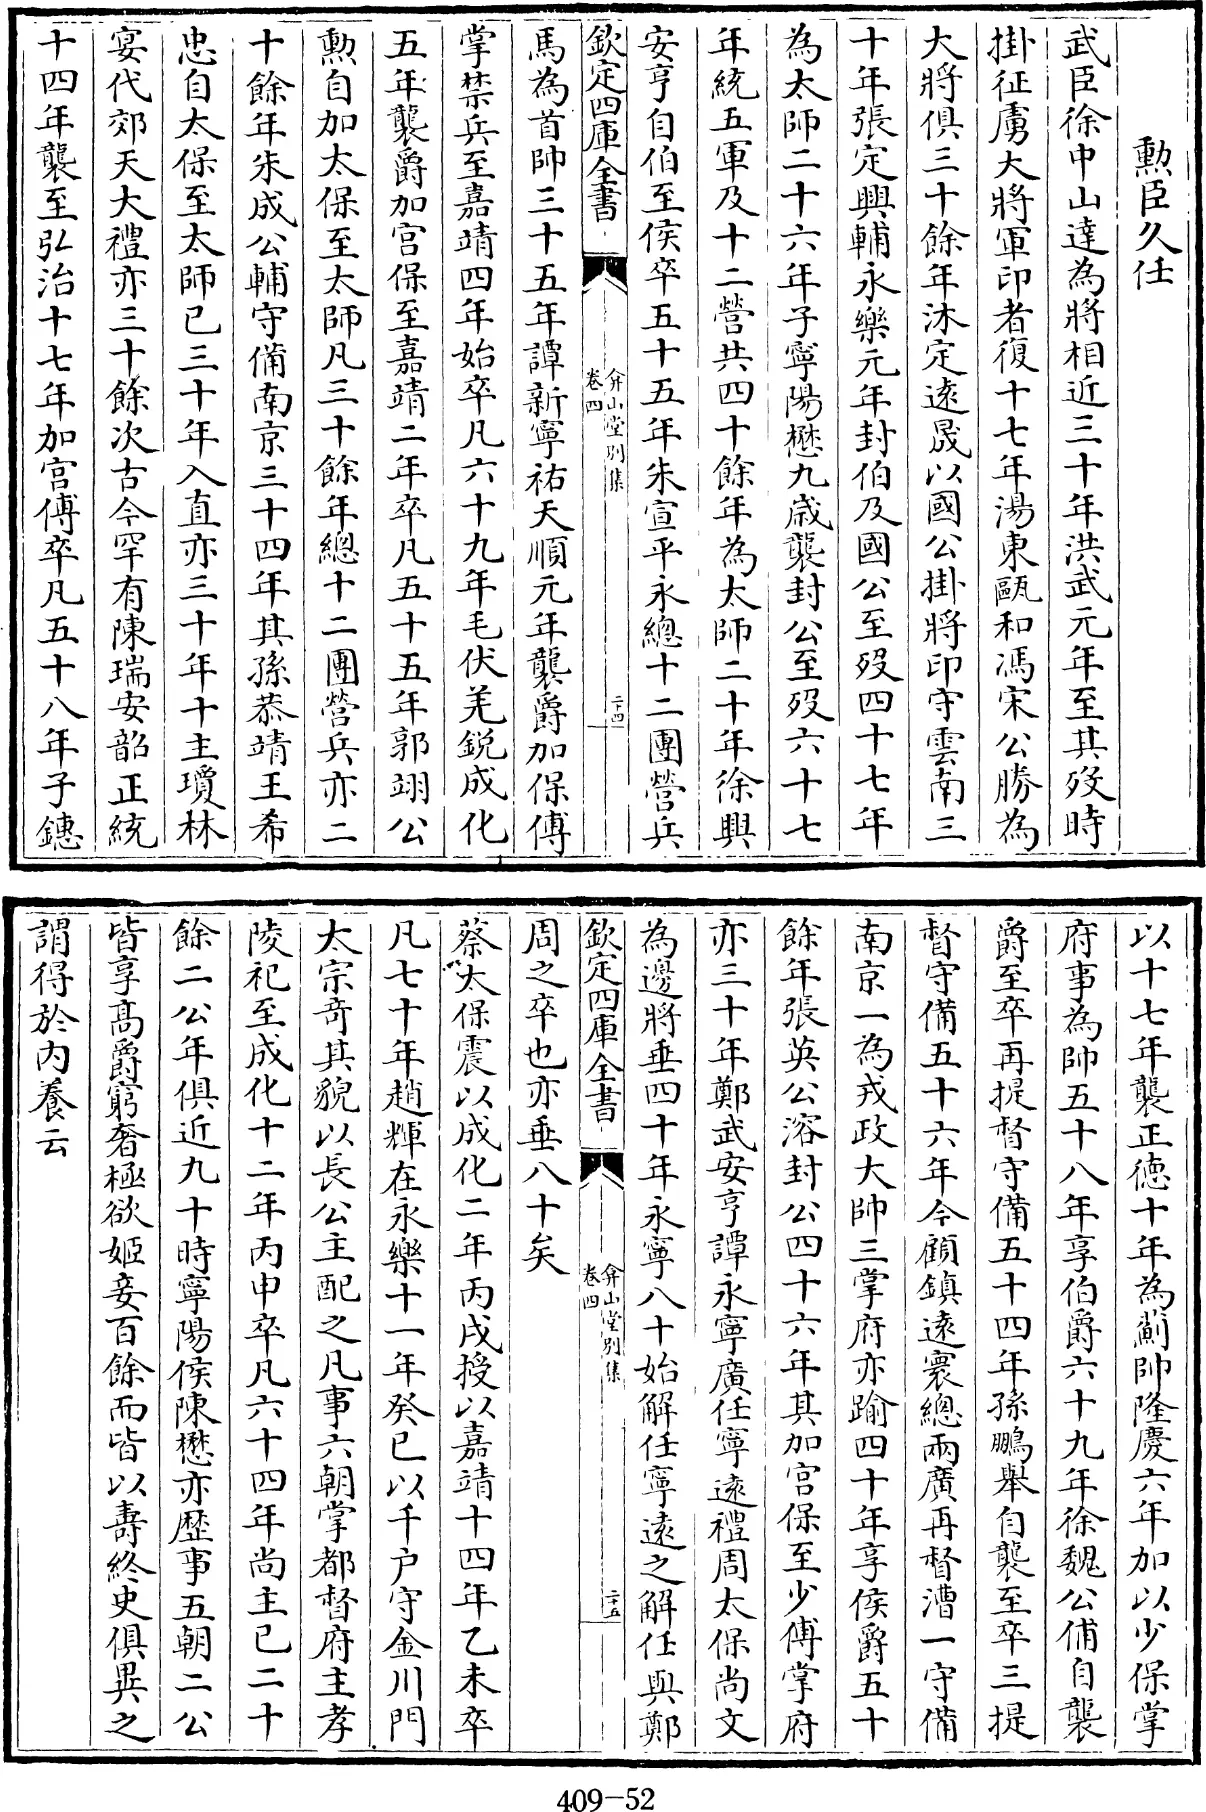 勲臣久任
武臣徐中山達為將相近三十年洪武元年至其歿時
掛征虜大將軍印者復十七年湯東甌和馮宋公勝為
大將俱三十餘年沐定遠晟以國公掛將印守雲南三
十年張定興輔永樂元年封伯及國公至歿四十七年
為太師二十六年子寧陽懋九歳襲封公至歿六十七
年統五軍及十二營共四十餘年為太師二十年徐興
安亨自伯至侯卒五十五年朱宣平永總十二團營兵
欽定四庫全書
弇山堂别集
卷四
二十四
馬為首帥三十五年譚新寧祐天順元年襲爵加保傅
掌禁兵至嘉靖四年始卒凡六十九年毛伏羌銳成化
五年襲爵加宫保至嘉靖二年卒凡五十五年郭翊公
勲自加太保至太師凡三十餘年總十二團營兵亦二
十餘年朱成公輔守備南京三十四年其孫恭靖王希
忠自太保至太師已三十年入直亦三十年十主瓊林
宴代郊天大禮亦三十餘次古今罕有陳瑞安韶正統
十四年襲至弘治十七年加宫傅卒凡五十八年子鏸
以十七年襲正德十年為薊帥隆慶六年加以少保掌
府事為帥五十八年享伯爵六十九年徐魏公俌自襲
爵至卒再提督守備五十四年孫鵬舉自襲至卒三提
督守備五十六年今顧鎮遠寰總兩廣再督漕一守備
南京一為戎政大帥三掌府亦踰四十年享侯爵五十
餘年張英公溶封公四十六年其加宫保至少傅掌府
亦三十年鄭武安亨譚永寧廣任寧遠禮周太保尚文
為邊將垂四十年永寧八十始解任寧遠之解任與鄭
欽定四庫全書
弇山堂别集
卷四
二十五
周之卒也亦垂八十矣
蔡太保震以成化二年丙戌授以嘉靖十四年乙未卒
凡七十年趙輝在永樂十一年癸巳以千户守金川門
太宗竒其貌以長公主配之凡事六朝掌都督府主孝
陵祀至成化十二年丙申卒凡六十四年尚主已二十
餘二公年俱近九十時寧陽侯陳懋亦歴事五朝二公
皆享髙爵窮奢極欲姬妾百餘而皆以壽終史俱異之
謂得於内養云
409-52